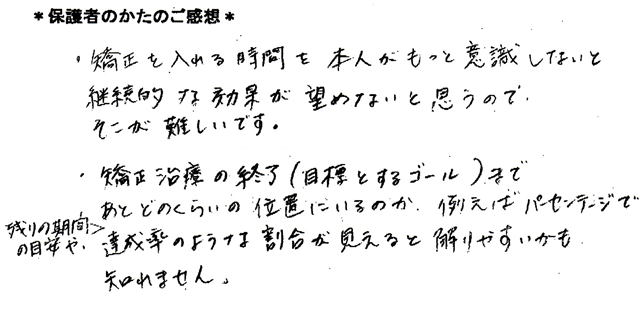 *保護者のかたのご感想*
・矯正を入れる時間を本人がもっと意識しないと
継続的な効果が望めないと思うので、
そこが難しいです。
・矯正治療の終了(目標とするゴール)まで
あとどのくらいの位置にいるのか、例えばパーセンテージで
残りの期間
の目安や、
達成率のような割合が見えると解りやすいかも
知れません。